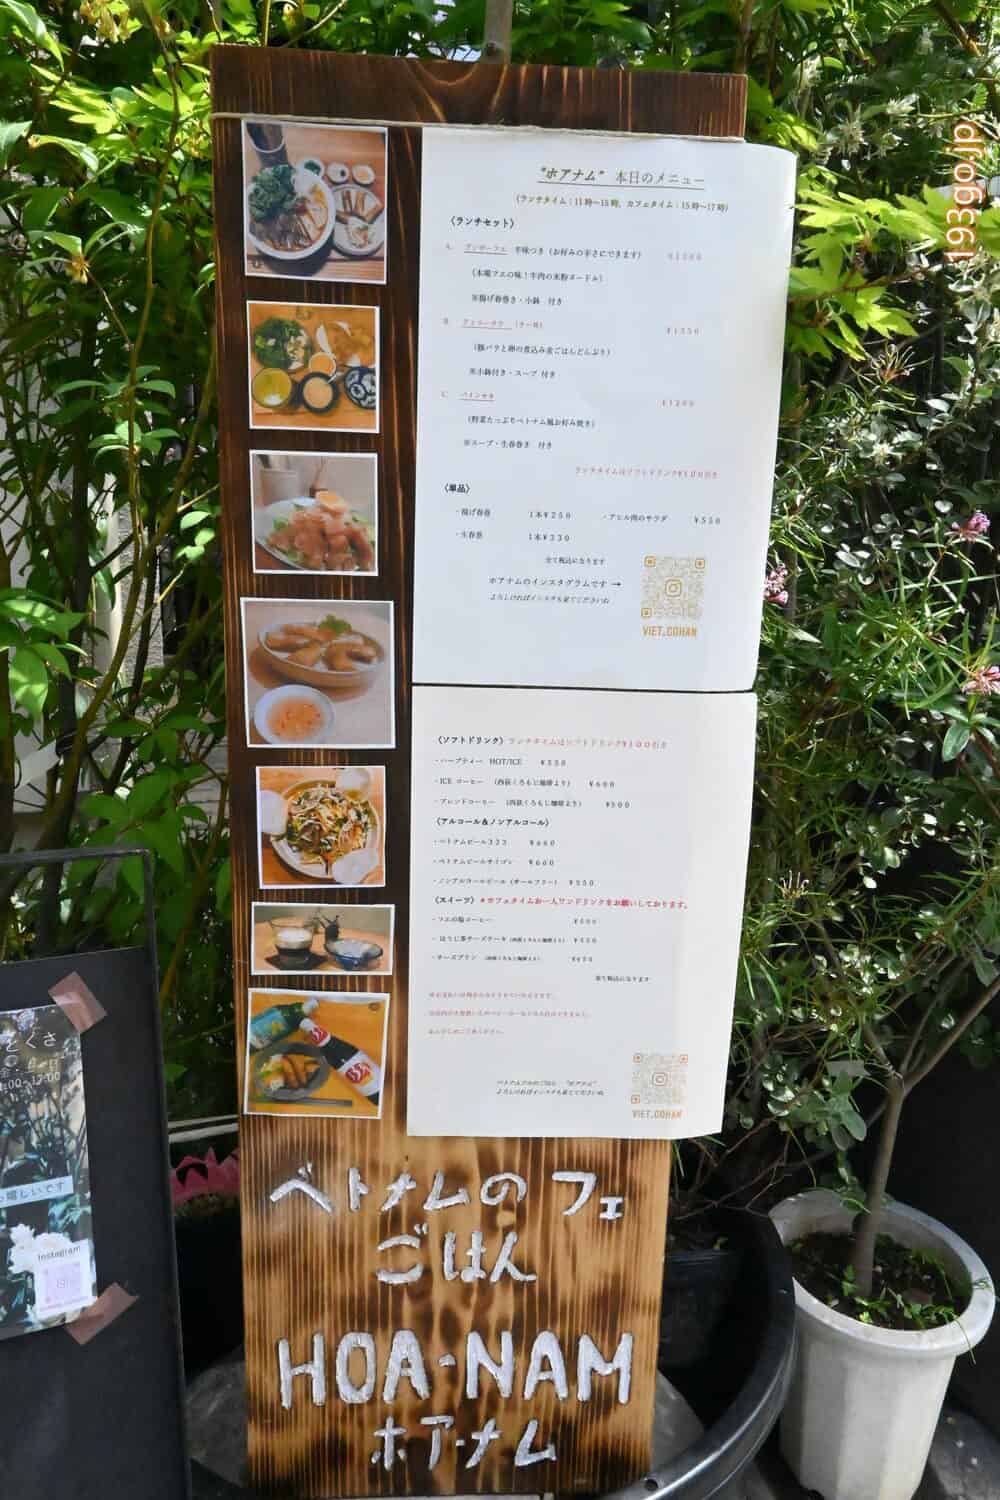 193go.jp
"ホアナム" 本日のメニュー
(ランチタイム：11時～15時, カフェタイム：15時～17時)
〈ランチセット〉
A. ブンボーフエ 辛味つき（お好みの辛さにできます）
（本場フエの味！牛肉の米粉ヌードル）
※揚げ春巻き・小鉢 付き
B. ¥1350
（豚バラと卵の煮込み ごはんどんぶり）
※小鉢付き・スープ 付き
C. バインセオ ¥1200
（野菜たっぷりベトナム風お好み焼き）
※スープ・生春巻き 付き
ランチタイムはソフトドリンク¥100引き
〈単品〉
・揚げ春巻 1本¥250 ・アヒル肉のサラダ ¥550
・生春巻 1本¥330
全て税込になります
ホアナムのインスタグラムです →
よろしければインスタも見てくださいね
VIET.GOHAN
〈ソフトドリンク〉ランチタイムはソフトドリンク¥100引き
・ハーブティー HOT/ICE ¥550
・ICE コーヒー （西荻くろもじ珈琲より） ¥600
・ブレンドコーヒー （西荻くろもじ珈琲より） ¥500
〈アルコール＆ノンアルコール〉
・ベトナムビール333 ¥660
・ベトナムビールサイゴン ¥660
・ノンアルコールビール（オールフリー） ¥550
〈スイーツ〉＊カフェタイムお一人ワンドリンクをお願いしております。
・フエの塩コーヒー
・ほうじ茶チーズケーキ（西荻くろもじ珈琲より）
・チーズプリン（西荻くろもじ珈琲より）
全て税込になります
ベトナムフエのごはん "ホアナム"
よろしければインスタも見てくださいね
VIET.GOHAN
ベトナムのフェ
ごはん
HOA-NAM
ホア・ナム
Instagram